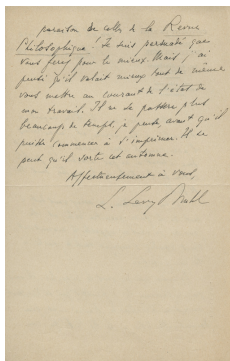 paraison de celles de la Revue
Philosophique. Je suis persuadé que
vous ferez pour le mieux. Mais j'ai
pensé qu'il valait mieux tout de même
vous mettre au courant de l'état de
mon travail. Il ne se passera plus
beaucoup de temps, je pense, avant qu'il
puisse commencer à s'imprimer. Il se
peut qu'il sorte cet automne.
Affectueusement à vous,
L. Lévy Bruhl